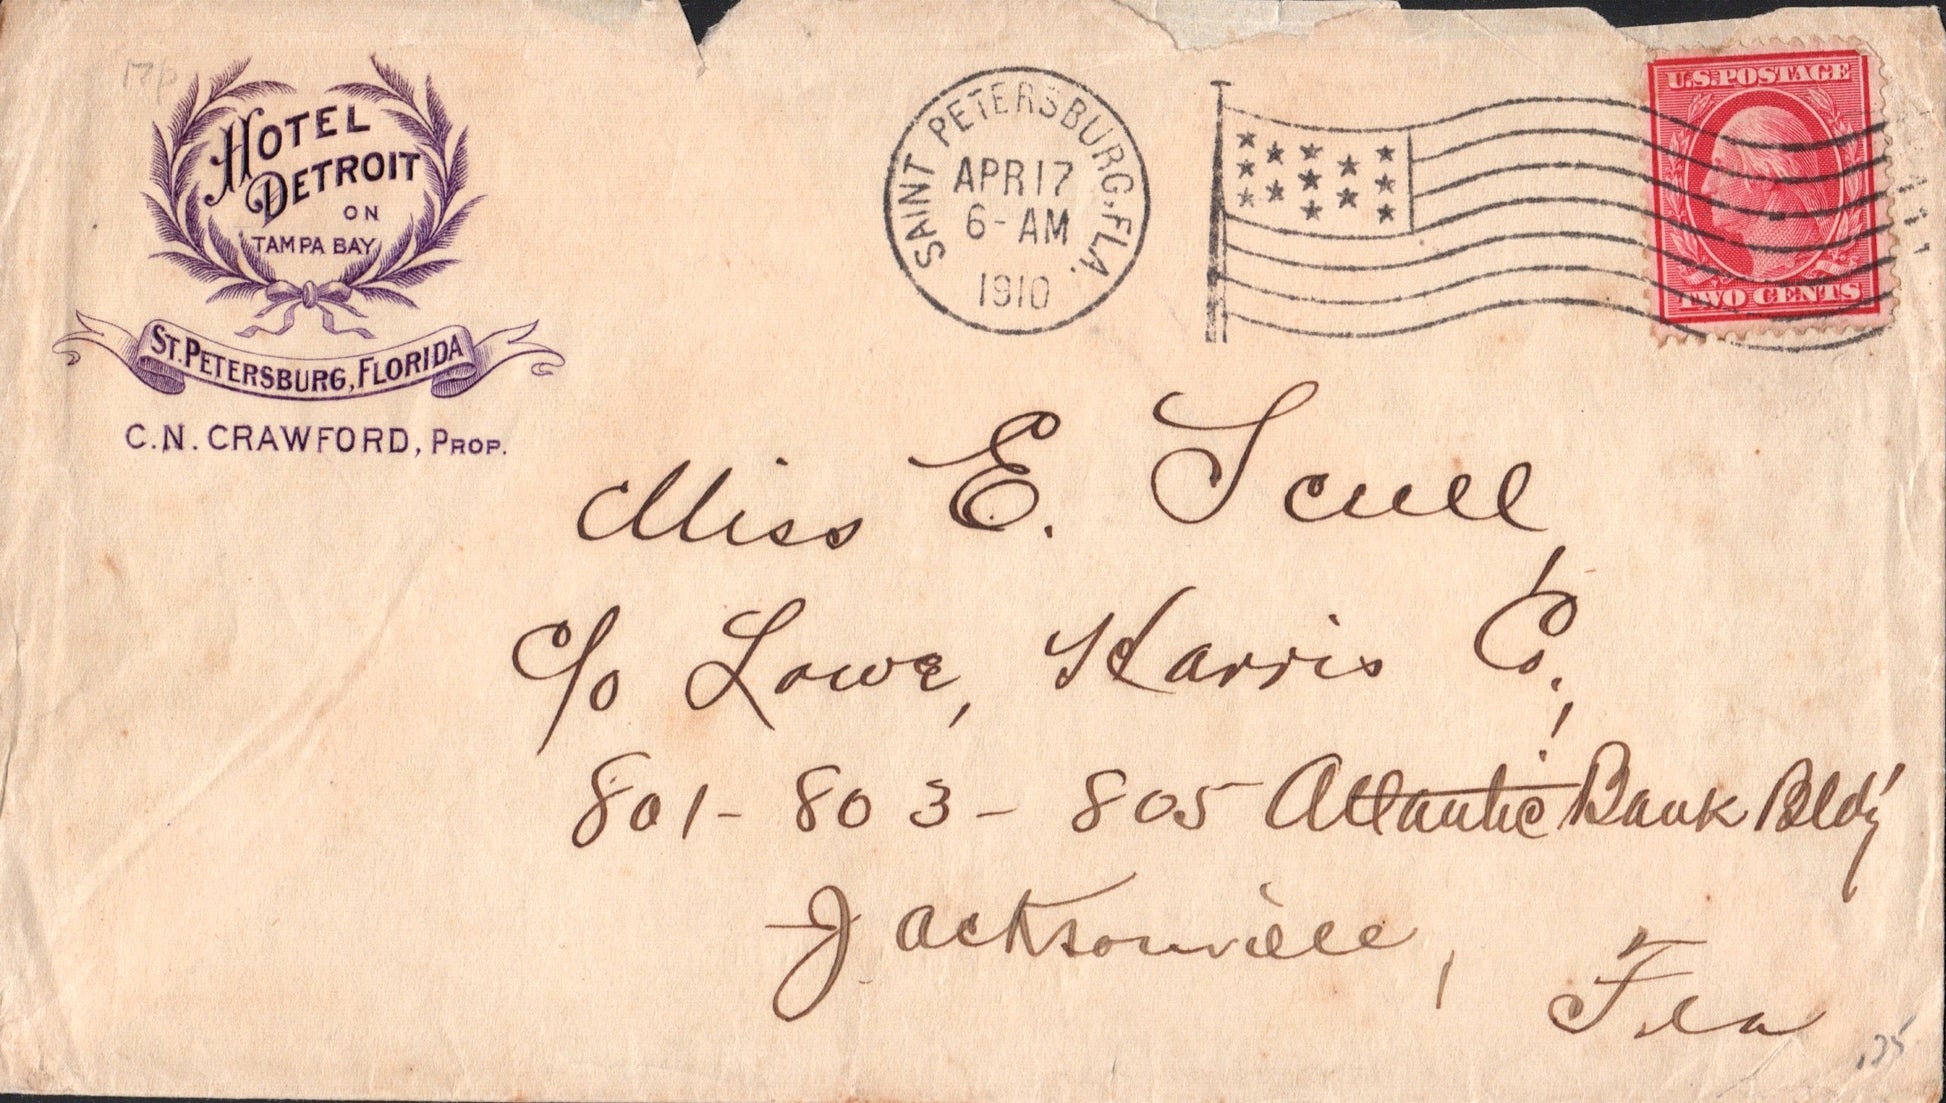 HOTEL
DETROIT
ON
TAMPA BAY
ST. PETERSBURG, FLORIDA
C.N. CRAWFORD, PROP.
SAINT PETERSBURG, FLA.
APR 17
6-AM
1910
U.S. POSTAGE
TWO CENTS
Miss E. Scull
c/o Lowe, Harris Co.,
801-803-805 Atlantic Bank Bldg
Jacksonville,
Fla